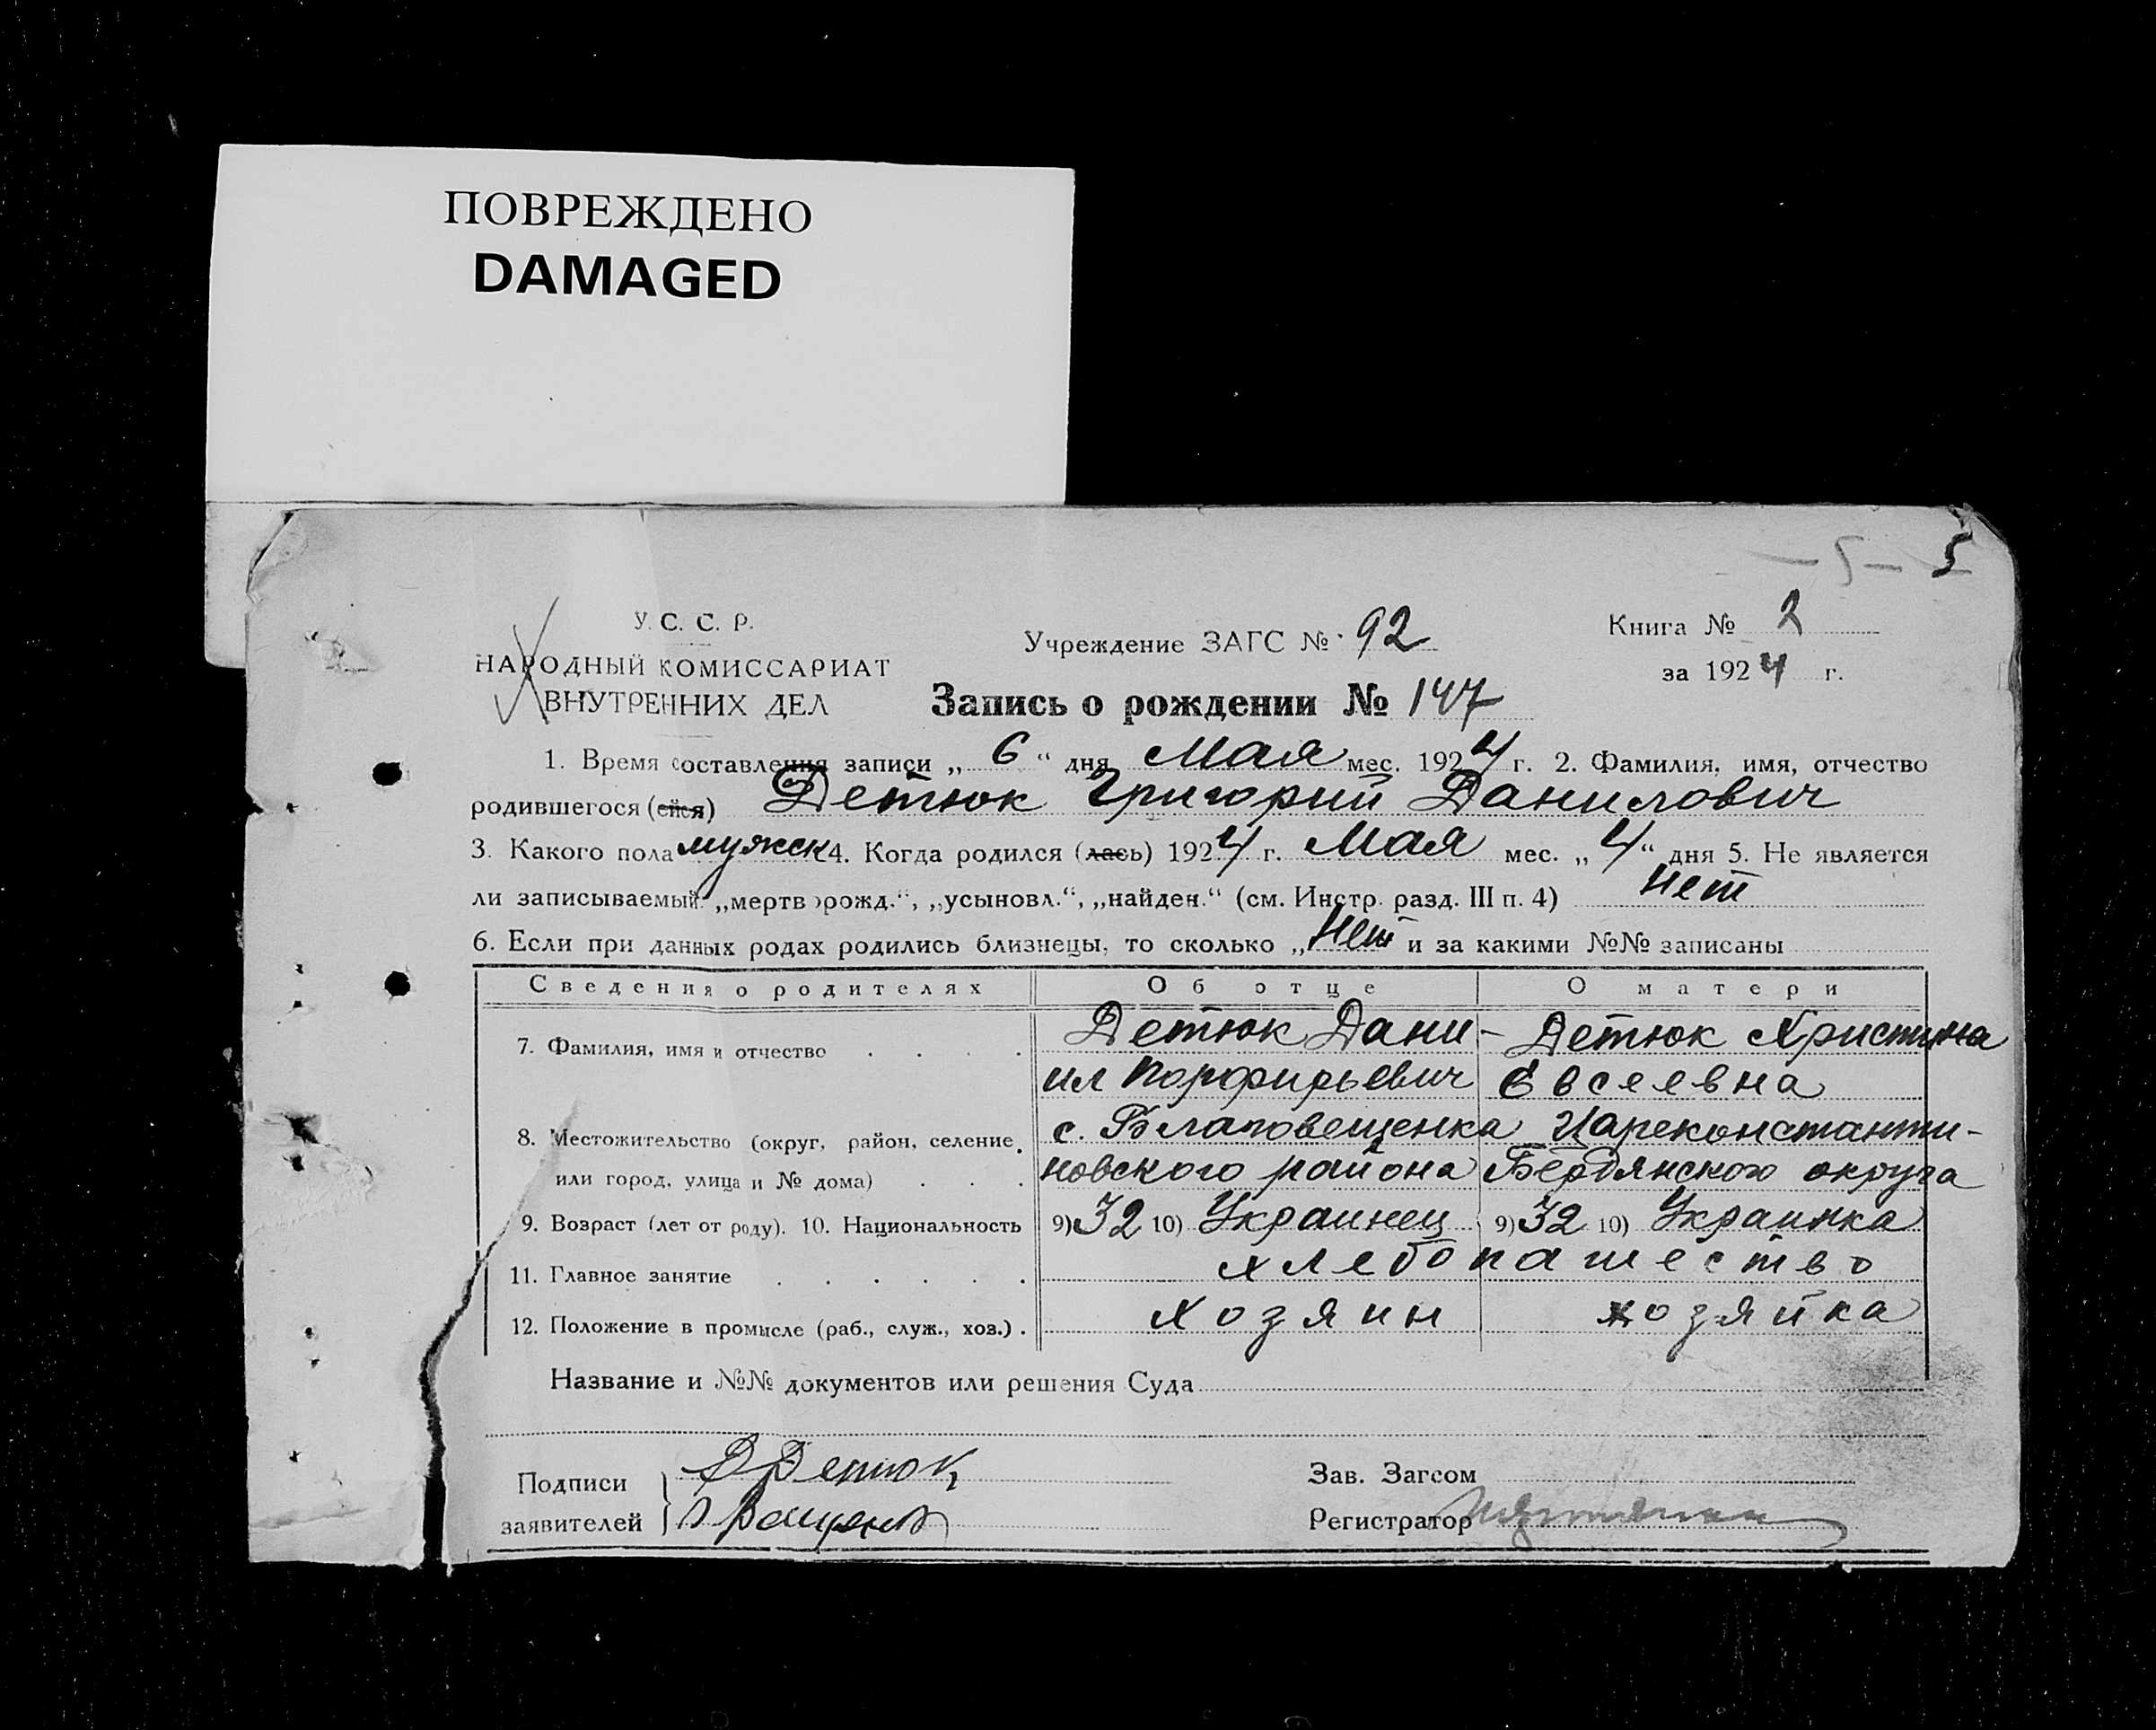 ПОВРЕЖДЕНО
DAMAGED
– 5 – 5
У. С. С. Р.
НАРОДНЫЙ КОМИССАРИАТ
ВНУТРЕННИХ ДЕЛ
Учреждение ЗАГС № 92
Книга № 2
за 1924 г.
Запись о рождении № 147
1. Время составления записи „ 6 “ дня Мая мес. 1924 г. 2. Фамилия, имя, отчество
родившегося (ейся) Детюк Григорий Данилович
3. Какого пола мужск 4. Когда родился (лась) 1924 г. Мая мес. „ 4 “ дня 5. Не является
ли записываемый „мертворожд.“, „усыновл.“, „найден.“ (см. Инстр. разд. III п. 4) Нет
6. Если при данных родах родились близнецы, то сколько „ Нет и за какими №№ записаны
Сведения о родителях Об отце О матери
7. Фамилия, имя и отчество . . . . Детюк Дани- Детюк Христина
ил Порфирьевич Евсеевна
8. Местожительство (округ, район, селение. с. Благовещенка Цареконстанти-
или город, улица и № дома) . . . новского района Бердянского округа
9. Возраст (лет от роду). 10. Национальность 9) 32 10) Украинец 9) 32 10) Украинка
11. Главное занятие . . . . . . хлебопашество
12. Положение в промысле (раб., служ., хоз.) . хозяин хозяйка
Название и №№ документов или решения Суда
Подписи Д Детюк Зав. Загсом
заявителей Регистратор